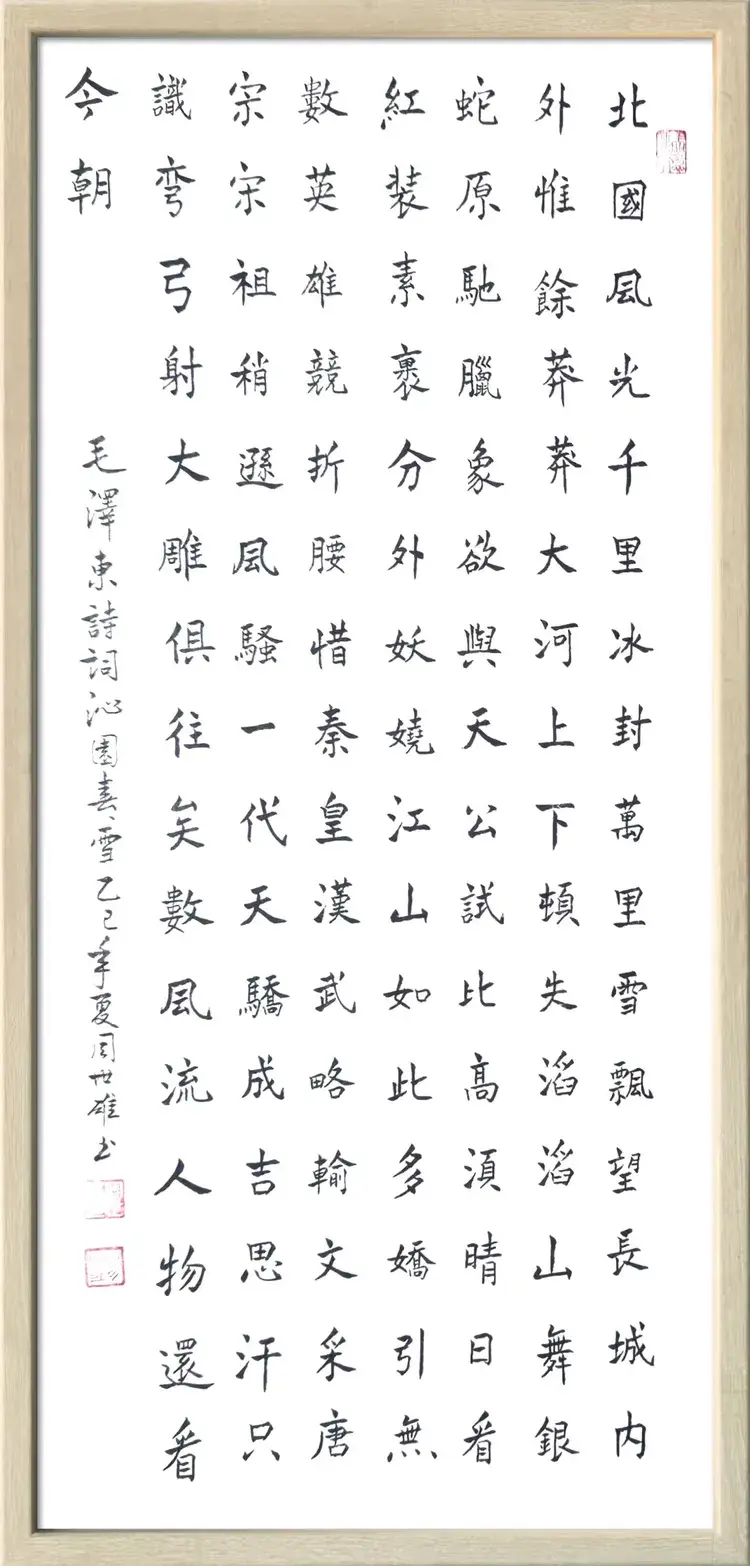 北國風光千里冰封萬里雪飄望長城内
外惟餘莽莽大河上下頓失滔滔山舞銀
蛇原馳臘象欲與天公試比高湏晴日看
紅装素裹分外妖嬈江山如此多嬌引無
數英雄競折腰惜秦皇漢武略輸文采唐
宗宋祖稍遜風騷一代天驕成吉思汗只
識彎弓射大雕俱往矣數風流人物還看
今朝
毛澤東詩詞沁園春、雪乙巳年夏周世雄书